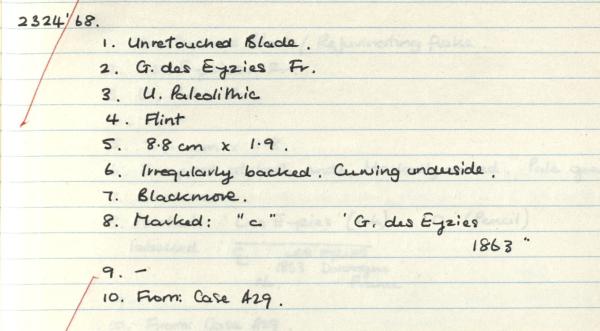 2324'68.
1. Unretouched Blade.
2. G. des Eyzies Fr.
3. U. Paleolithic
4. Flint
5. 8.8cm x 1.9.
6. Irregularly backed. Curving underside.
7. Blackmore.
8. Marked: "c" 'G. des Eyzies
1863"
9. -
10. From: Case A29.